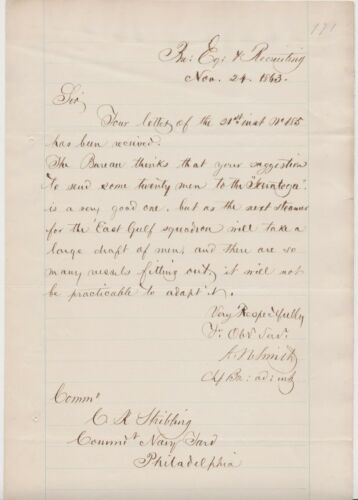 171
Bu: Eq: & Recruiting
Nov. 24. 1863.
Sir,
Your letter of the 21st inst No 185
has been received.
The Bureau thinks that your suggestion
to send some twenty men to the "Saratoga"
is a very good one, but as the next steamer
for the East Gulf squadron will take a
large draft of men, and there are so
many vessels fitting out, it will not
be practicable to adapt it.
Very Respectfully
Yr Obt Servt
A. N. Smith
Chf Bu: ad: int
Commo
C K Stribling
Commdt Navy Yard
Philadelphia